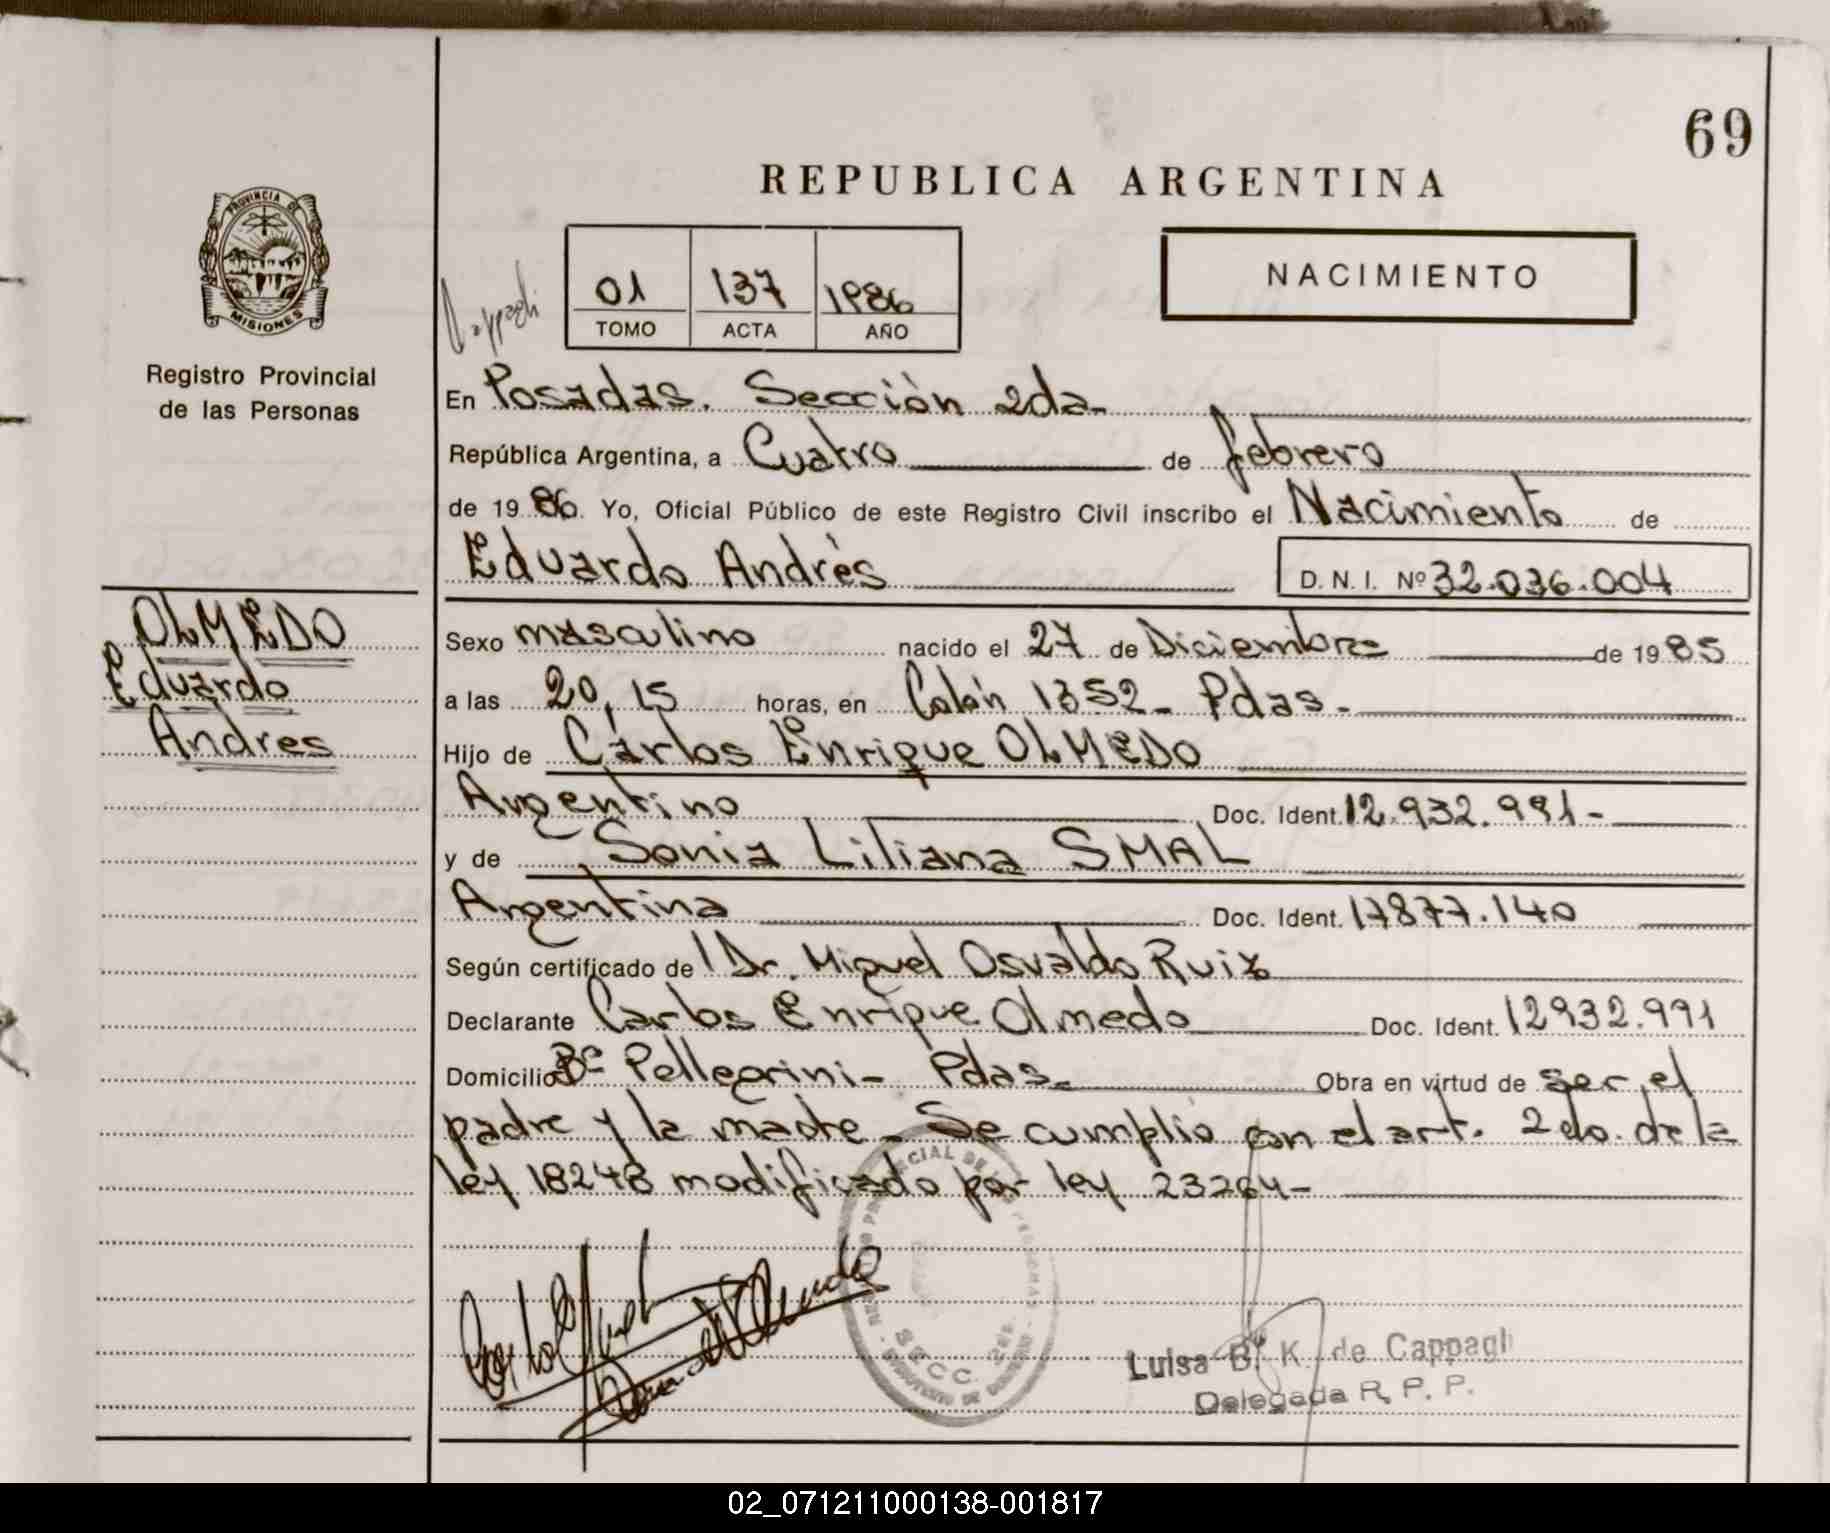 69
REPUBLICA ARGENTINA
PROVINCIA DE
MISIONES
Registro Provincial
de las Personas
NACIMIENTO
Cappagli
01 137 1986
TOMO ACTA AÑO
En Posadas. Sección 2da-
República Argentina, a Cuatro de febrero
de 1986. Yo, Oficial Público de este Registro Civil inscribo el Nacimiento de
Eduardo Andrés D. N. I. Nº 32.036.004
OLMEDO
Eduardo
Andres
Sexo masculino nacido el 27 de Diciembre de 1985
a las 20,15 horas, en Colón 1352- Pdas-
Hijo de Carlos Enrique OLMEDO
Argentino Doc. Ident. 12.932.991-
y de Sonia Liliana SMAL
Argentina Doc. Ident. 17877.140
Según certificado del Dr. Miguel Osvaldo Ruiz
Declarante Carlos Enrique Olmedo Doc. Ident. 12932.991
Domicilio Bº Pellegrini- Pdas- Obra en virtud de ser el
padre y la madre- Se cumplió con el art. 2do. de la
ley 18248 modificado por ley 23264-
SECC. 2da.
Luisa B. K. de Cappagli
Delegada R. P. P.
02_071211000138-001817